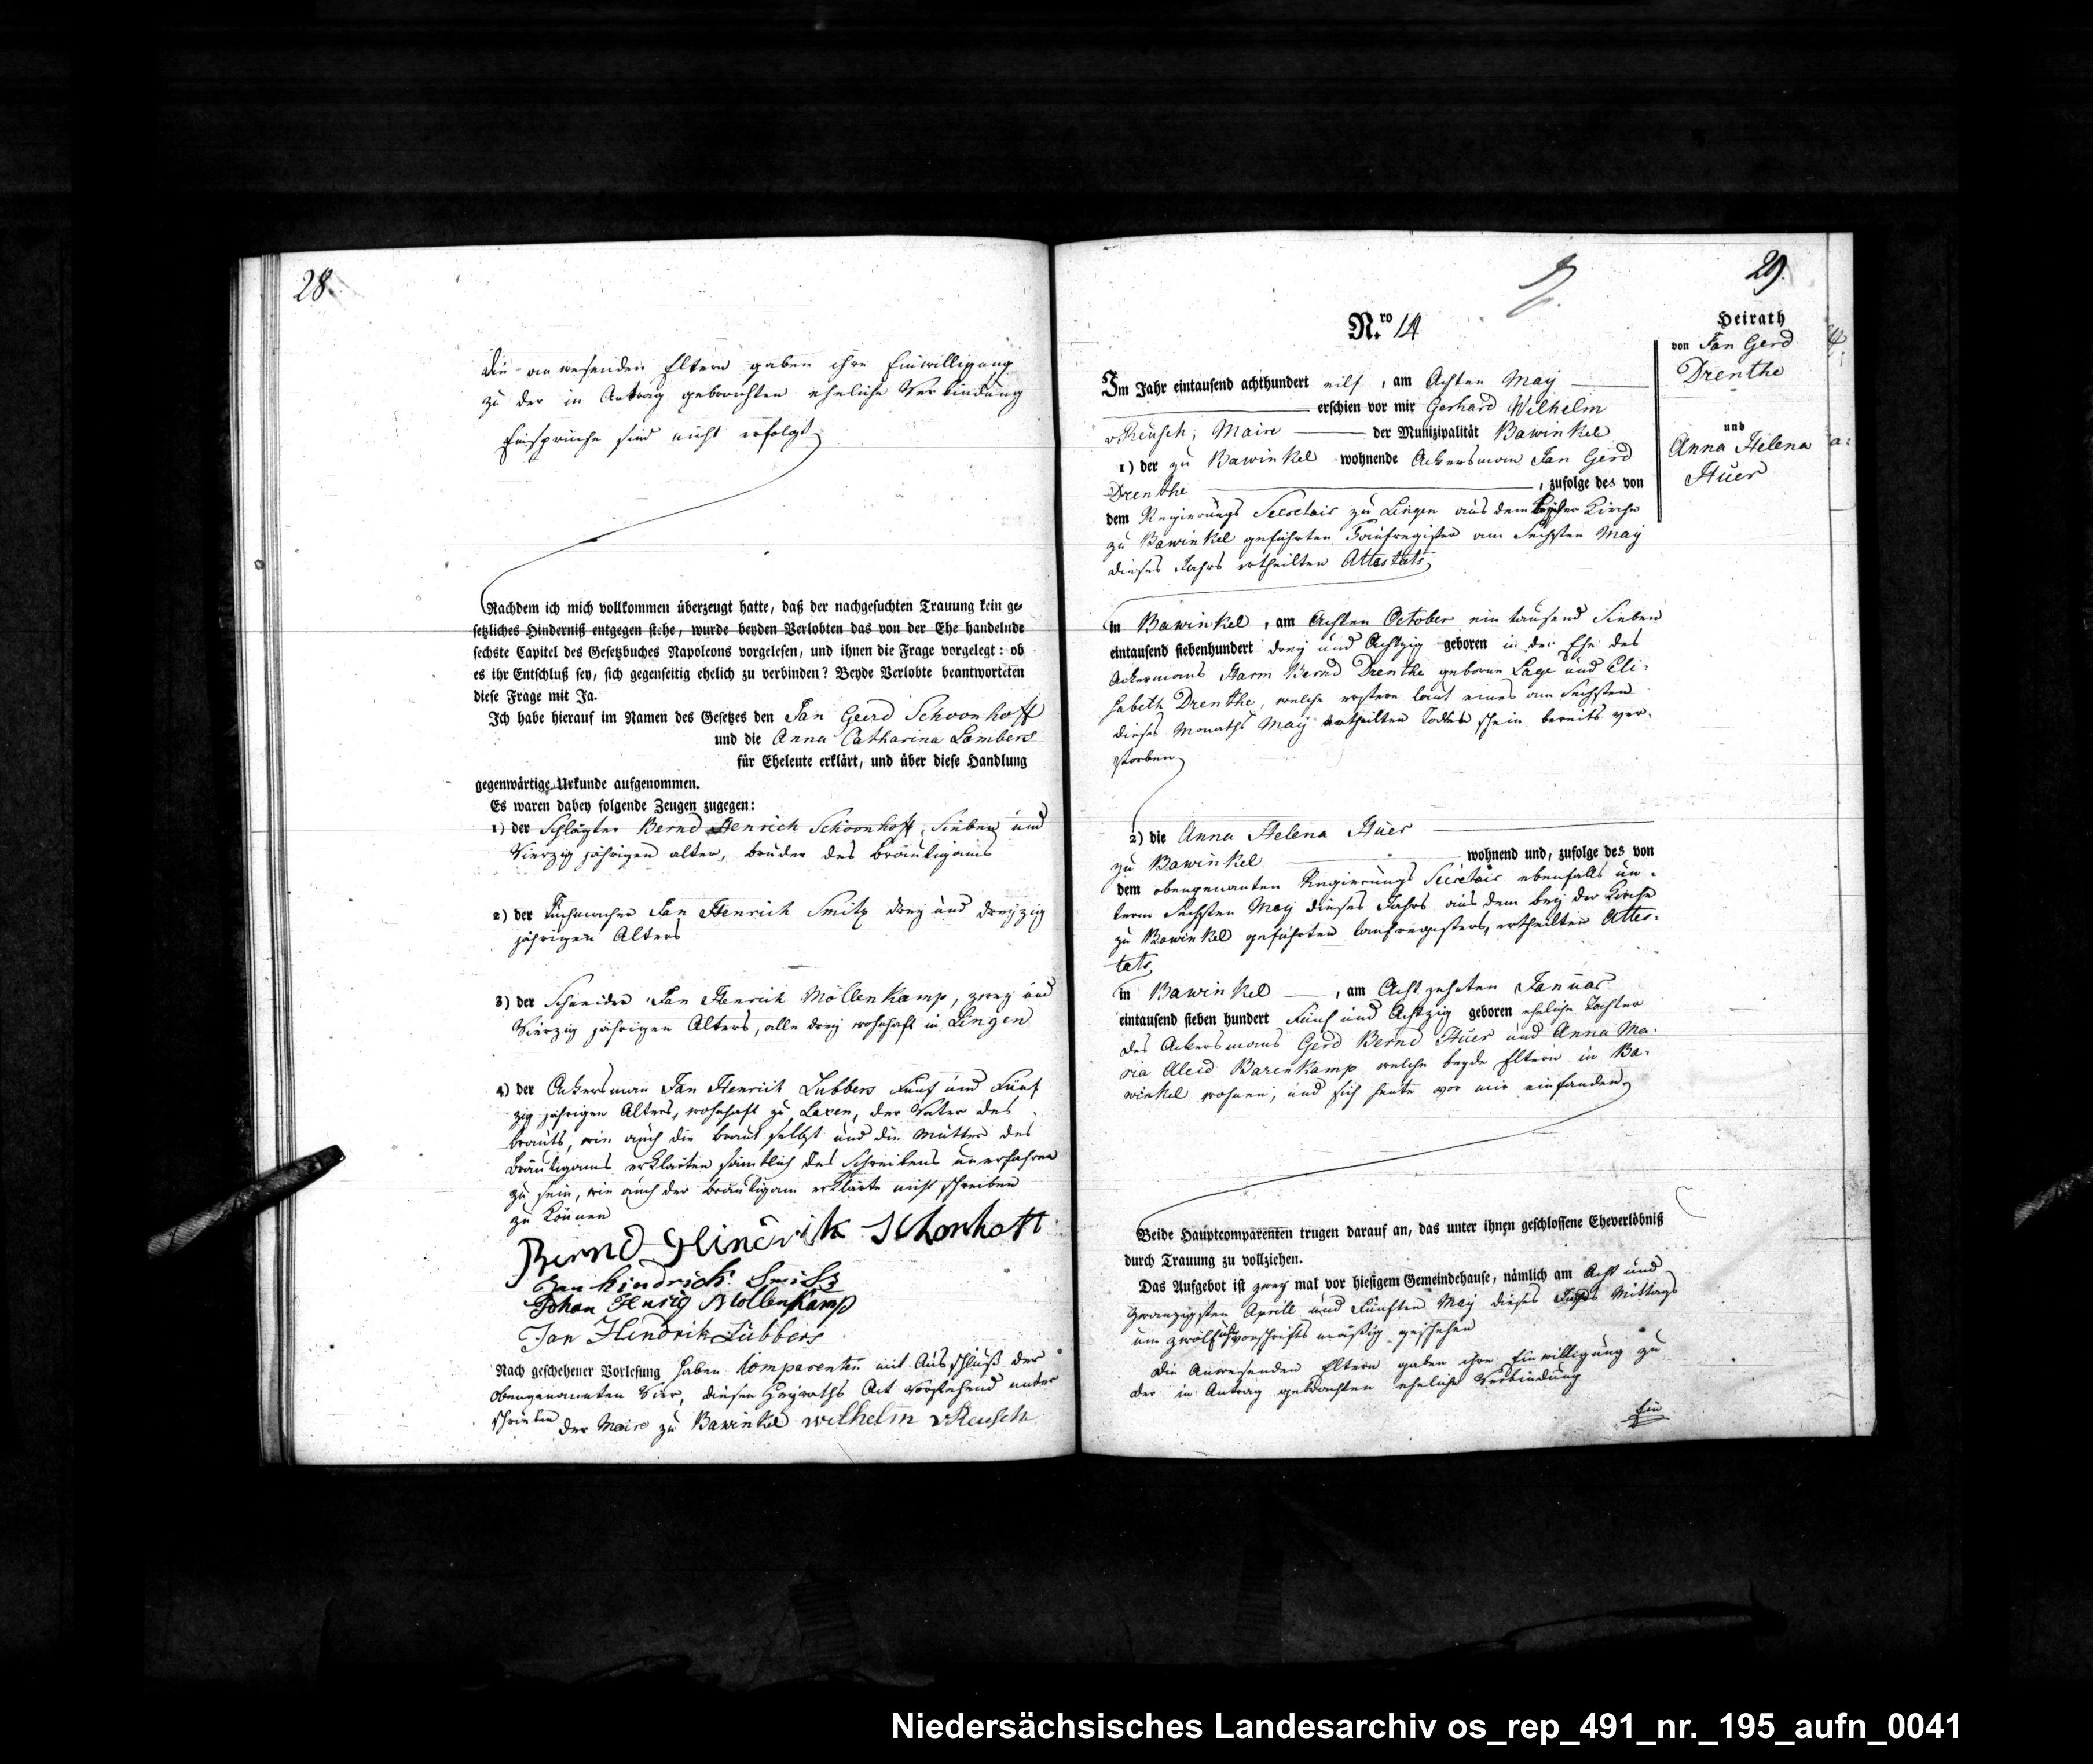 28.
die anwesenden Eltern gaben ihre Einwilligung
zu der in Antrag gebrachten eheliche Verbindung
Einsprüche sind nicht erfolgt
Nachdem ich mich vollkommen überzeugt hatte, daß der nachgesuchten Trauung kein ge-
setzliches Hinderniß entgegen stehe, wurde beyden Verlobten das von der Ehe handelnde
sechste Capitel des Gesetzbuches Napoleons vorgelesen, und ihnen die Frage vorgelegt: ob
es ihr Entschluß sey, sich gegenseitig ehelich zu verbinden? Beyde Verlobte beantworteten
diese Frage mit Ja.
Ich habe hierauf im Namen des Gesetzes den Jan Geerd Schoonhoff
und die Anna Catharina Lombers
für Eheleute erklärt, und über diese Handlung
gegenwärtige Urkunde aufgenommen.
Es waren dabey folgende Zeugen zugegen:
1) der Bernd Henrich Schoonhoff, Sieben und
Vierzig jährigen alter, bruder des Bräutigams
2) der Tuchmacher Jan Henrich Smitz drey und dreyzig
jährigen Alters
3) der Schneider Jan Henrich Möllenkamp, zwey und
Vierzig jährigen Alters, alle drey wohnhaft in Lingen
4) der Ackersman Jan Henrich Lubbers Fünf und Fünf
zig jährigen Alters, wohnhaft zu Laxen, der Vater des
brauts, wie auch die braut selbst und die Mutter des
Bräutigams erklärten sämtlich des Schreibens unerfahren
zu sein, wie auch der bräutigam erklärte nicht schreiben
zu können
Bernd Hinderik Schonhoff
Jan hindrich Smitz
Johan Henrig Mollenkamp
Jan Hendrik Lübbers
Nach geschehener Vorlesung haben Comparenten mit Ausschluß der
obengenannten Vier, diesen Heyraths Act vorstehend unter
schrieben der Maire zu Bawinkel Wilhelm vReusch
29.
Nro. 14
Heirath
von Jan Gerd
Drenthe
und
Anna Helena
Hüer
Im Jahr eintausend achthundert eilf, am Achten May
erschien vor mir Gerhard Wilhelm
vReusch, Maire der Munizipalität Bawinkel
1) der zu Bawinkel wohnende Ackersmann Jan Gerd
Drenthe, zufolge des von
dem Regierungs Secretair zu Lingen aus dem Kirche
zu Bawinkel geführten Taufregister am Sechsten May
dieses Jahrs ertheilten Attestats
in Bawinkel, am Achten October ein tausend Sieben
eintausend siebenhundert drey und Achtzig geboren in der Ehe des
Ackermans Harm Bernd Drenthe geborne Lage und Eli-
sabeth Drenthe, welche erstere laut eines am Sechsten
dieses Monaths May ertheilten Todtenschein bereits ver-
storben
2) die Anna Helena Hüer
zu Bawinkel wohnend und, zufolge des von
dem obengenanten Regierungs Secretair ebenfalls un-
term Sechsten May dieses Jahrs aus dem bey der Kirche
zu Bawinkel geführten taufregisters, ertheilten Attes-
tats
in Bawinkel, am Acht zehnten Januar
eintausend sieben hundert Fünf und Achtzig geboren eheliche Tochter
des Ackersmans Gerd Bernd Hüer und Anna Ma-
ria Aleid Barenkamp welche beyde Eltern in Ba-
winkel wohnen, und sich heute vor mir einfanden
Beide Hauptcomparenten trugen darauf an, das unter ihnen geschlossene Eheverlöbniß
durch Trauung zu vollziehen.
Das Aufgebot ist zwey mal vor hiesigem Gemeindehause, nämlich am Acht und
zwanzigsten Aprill und Fünften May dieses Jahrs Mittags
um zwölf Uhr vorschriftsmäßig geschehen
Die Anwesenden Eltern gaben ihre Einwilligung zu
der in Antrag gebrachten eheliche Verbindung
Ein
Niedersächsisches Landesarchiv os_rep_491_nr._195_aufn_0041